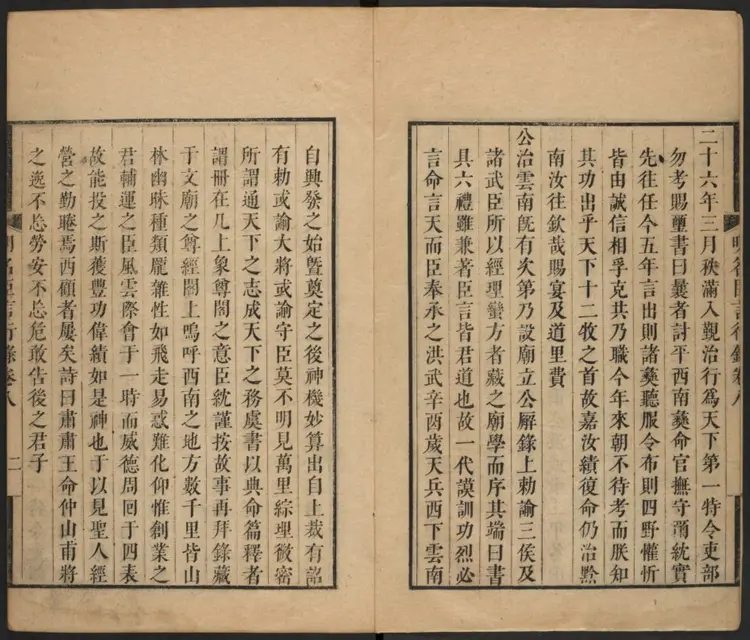 二十六年三月秩滿入覲治行爲天下第一特令吏部
勿考賜璽書曰曩者討平西南蠻命官撫守爾紞實
先往任今五年言出則諸蠻聽服令布則四野懽忻
皆由誠信相孚克共乃職今年來朝不待考而朕知
其功出乎天下十二牧之首故嘉汝績復命仍治黔
南汝往欽哉賜宴及道里費
公治雲南旣有次第乃設廟立公廨錄上勅諭三侯及
諸武臣所以經理蠻方者藏之廟學而序其端曰書
具六禮雖兼著臣言皆君道也故一代謨訓功烈必
言命言天而臣奉承之洪武辛酉歲天兵西下雲南
明名臣言行錄卷八
自興發之始曁奠定之後神機妙算出自上裁有詔
有勅或諭大將或諭守臣莫不明見萬里綜理微密
所謂通天下之志成天下之務虞書以典命篇釋者
謂冊在几上象尊閣之意臣紞謹按故事再拜錄藏
于文廟之尊經閣上嗚呼西南之地方數千里皆山
林幽眛種類龐雜性如飛走易惑難化仰惟創業之
君輔運之臣風雲際會于一時而威德周囘于四表
故能投之斯獲豐功偉績如是神也于以見聖人經
營之勤睠焉西顧者屢矣詩曰肅肅王命仲山甫將
之逸不忘勞安不忘危敢告後之君子
明名臣言行錄卷八
二